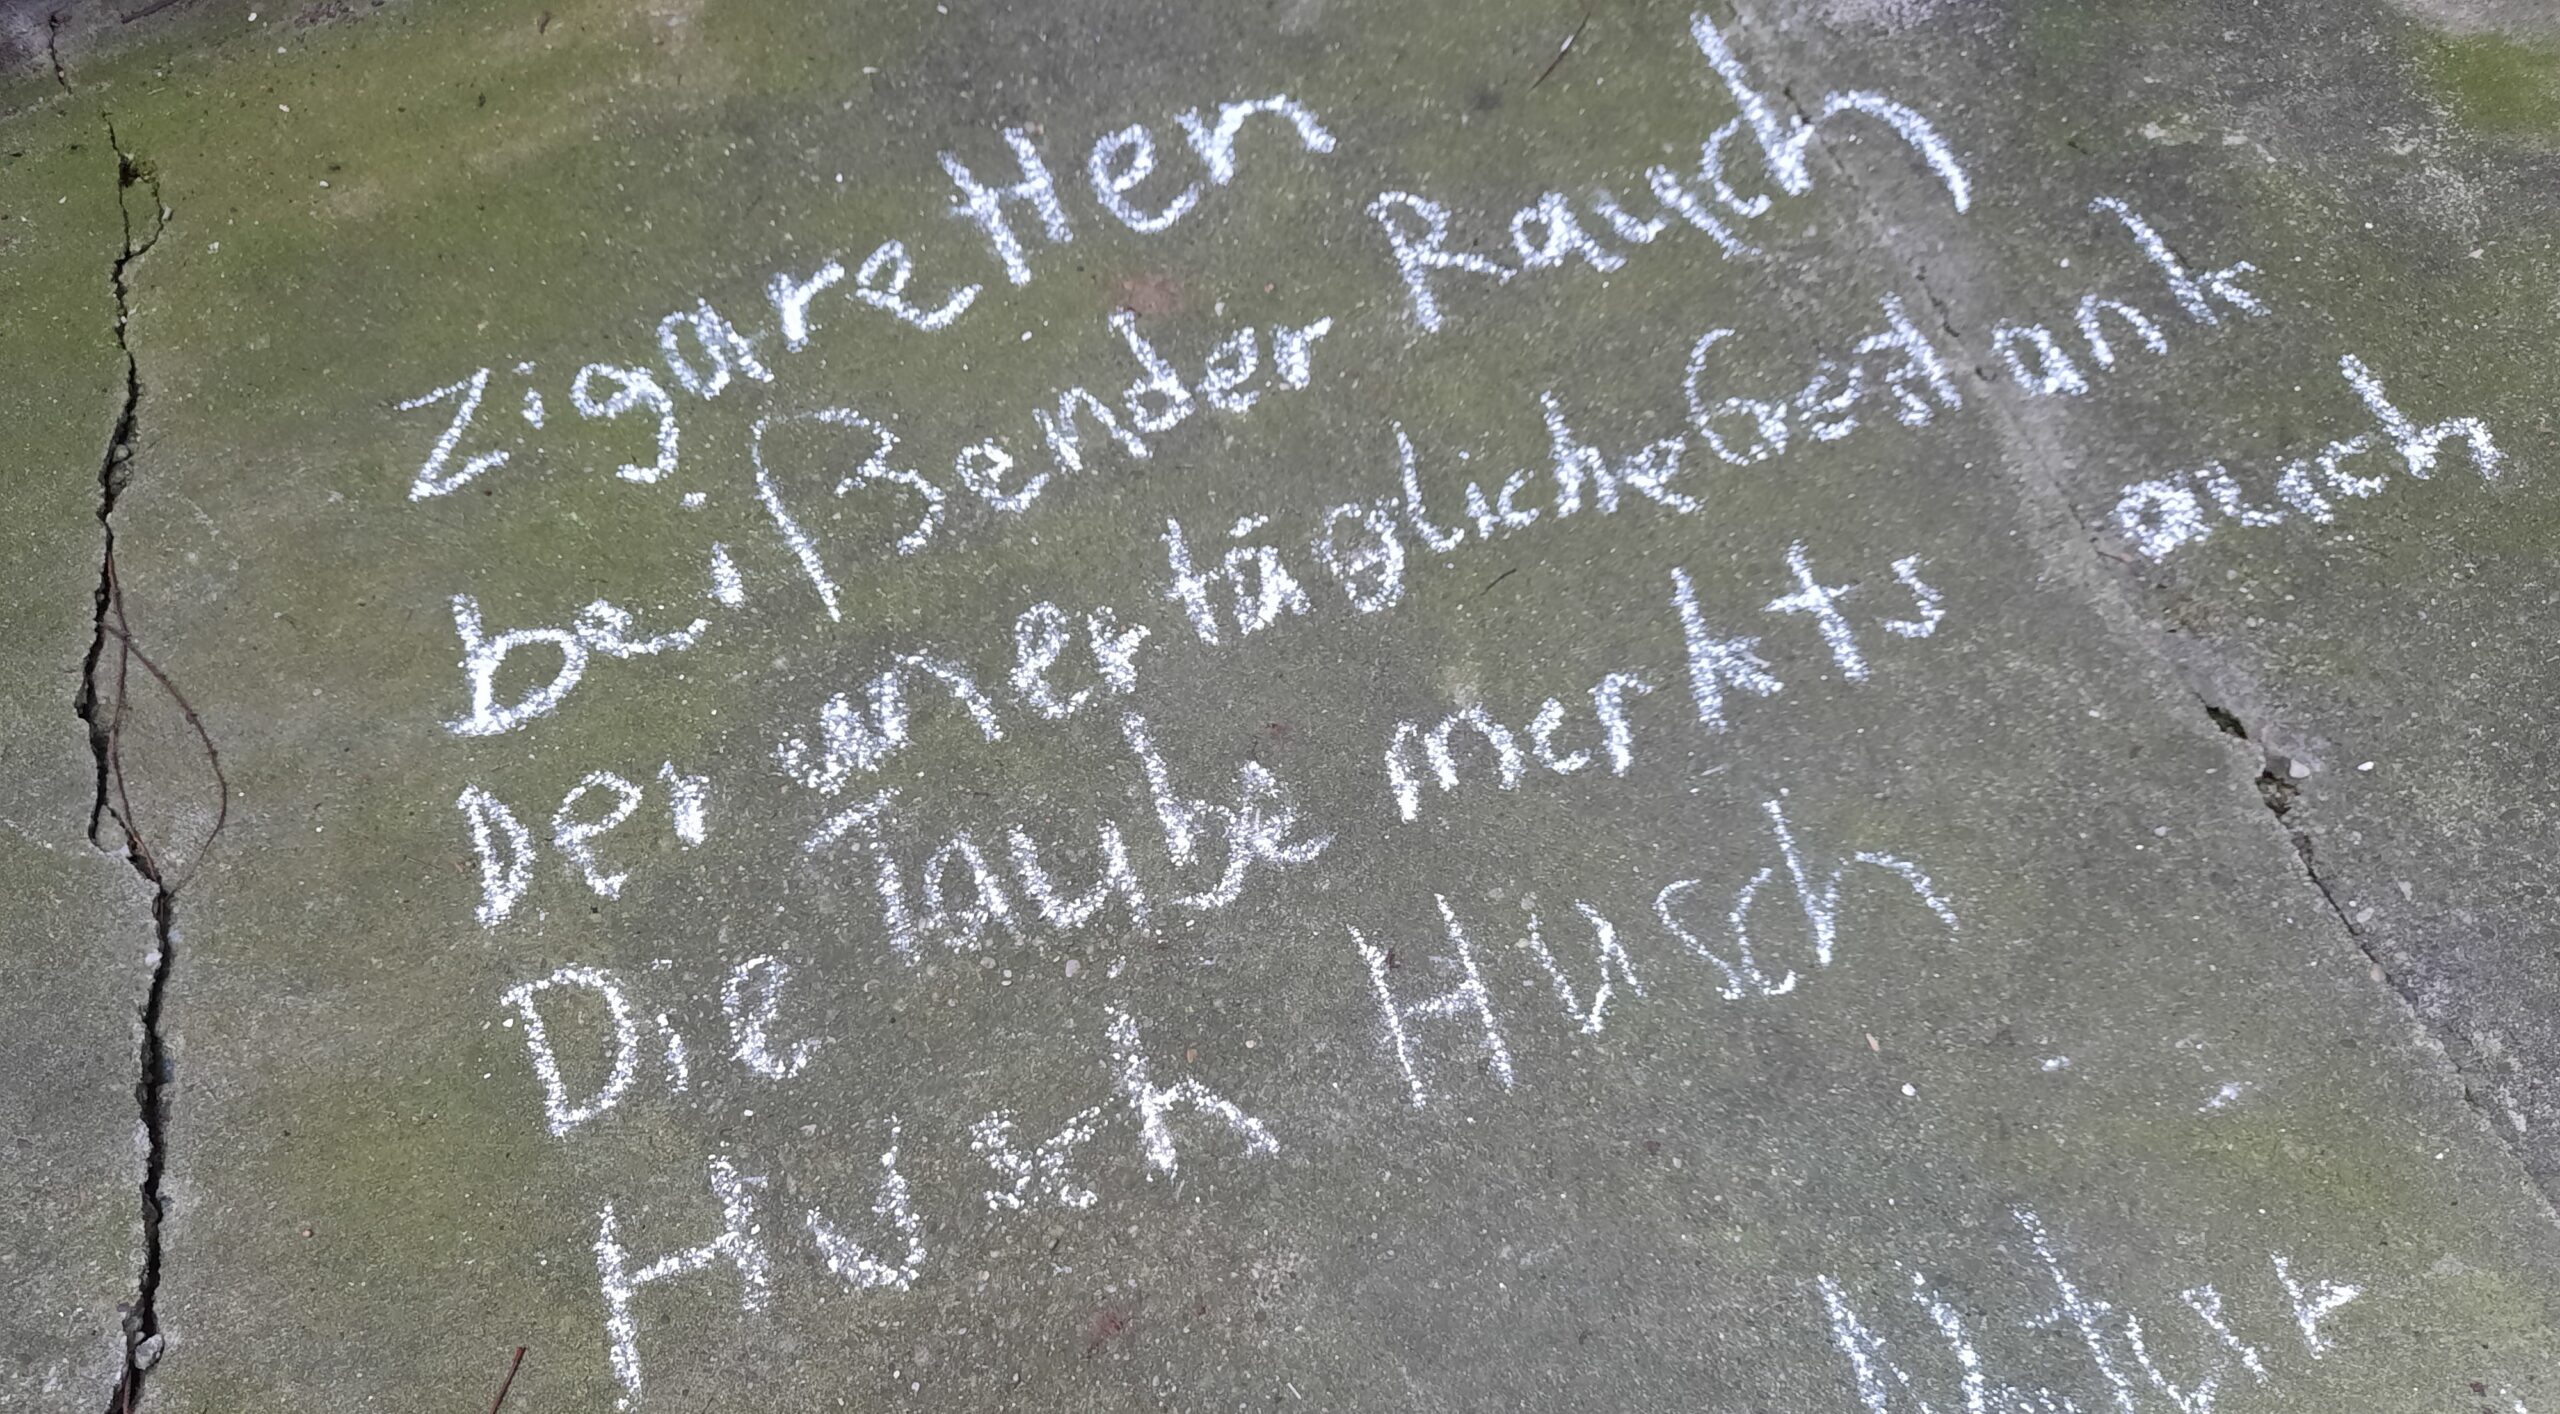 Zigaretten
beißender Rauch
Der unertägliche Gestank
Die Taube merkts auch
Husch Husch